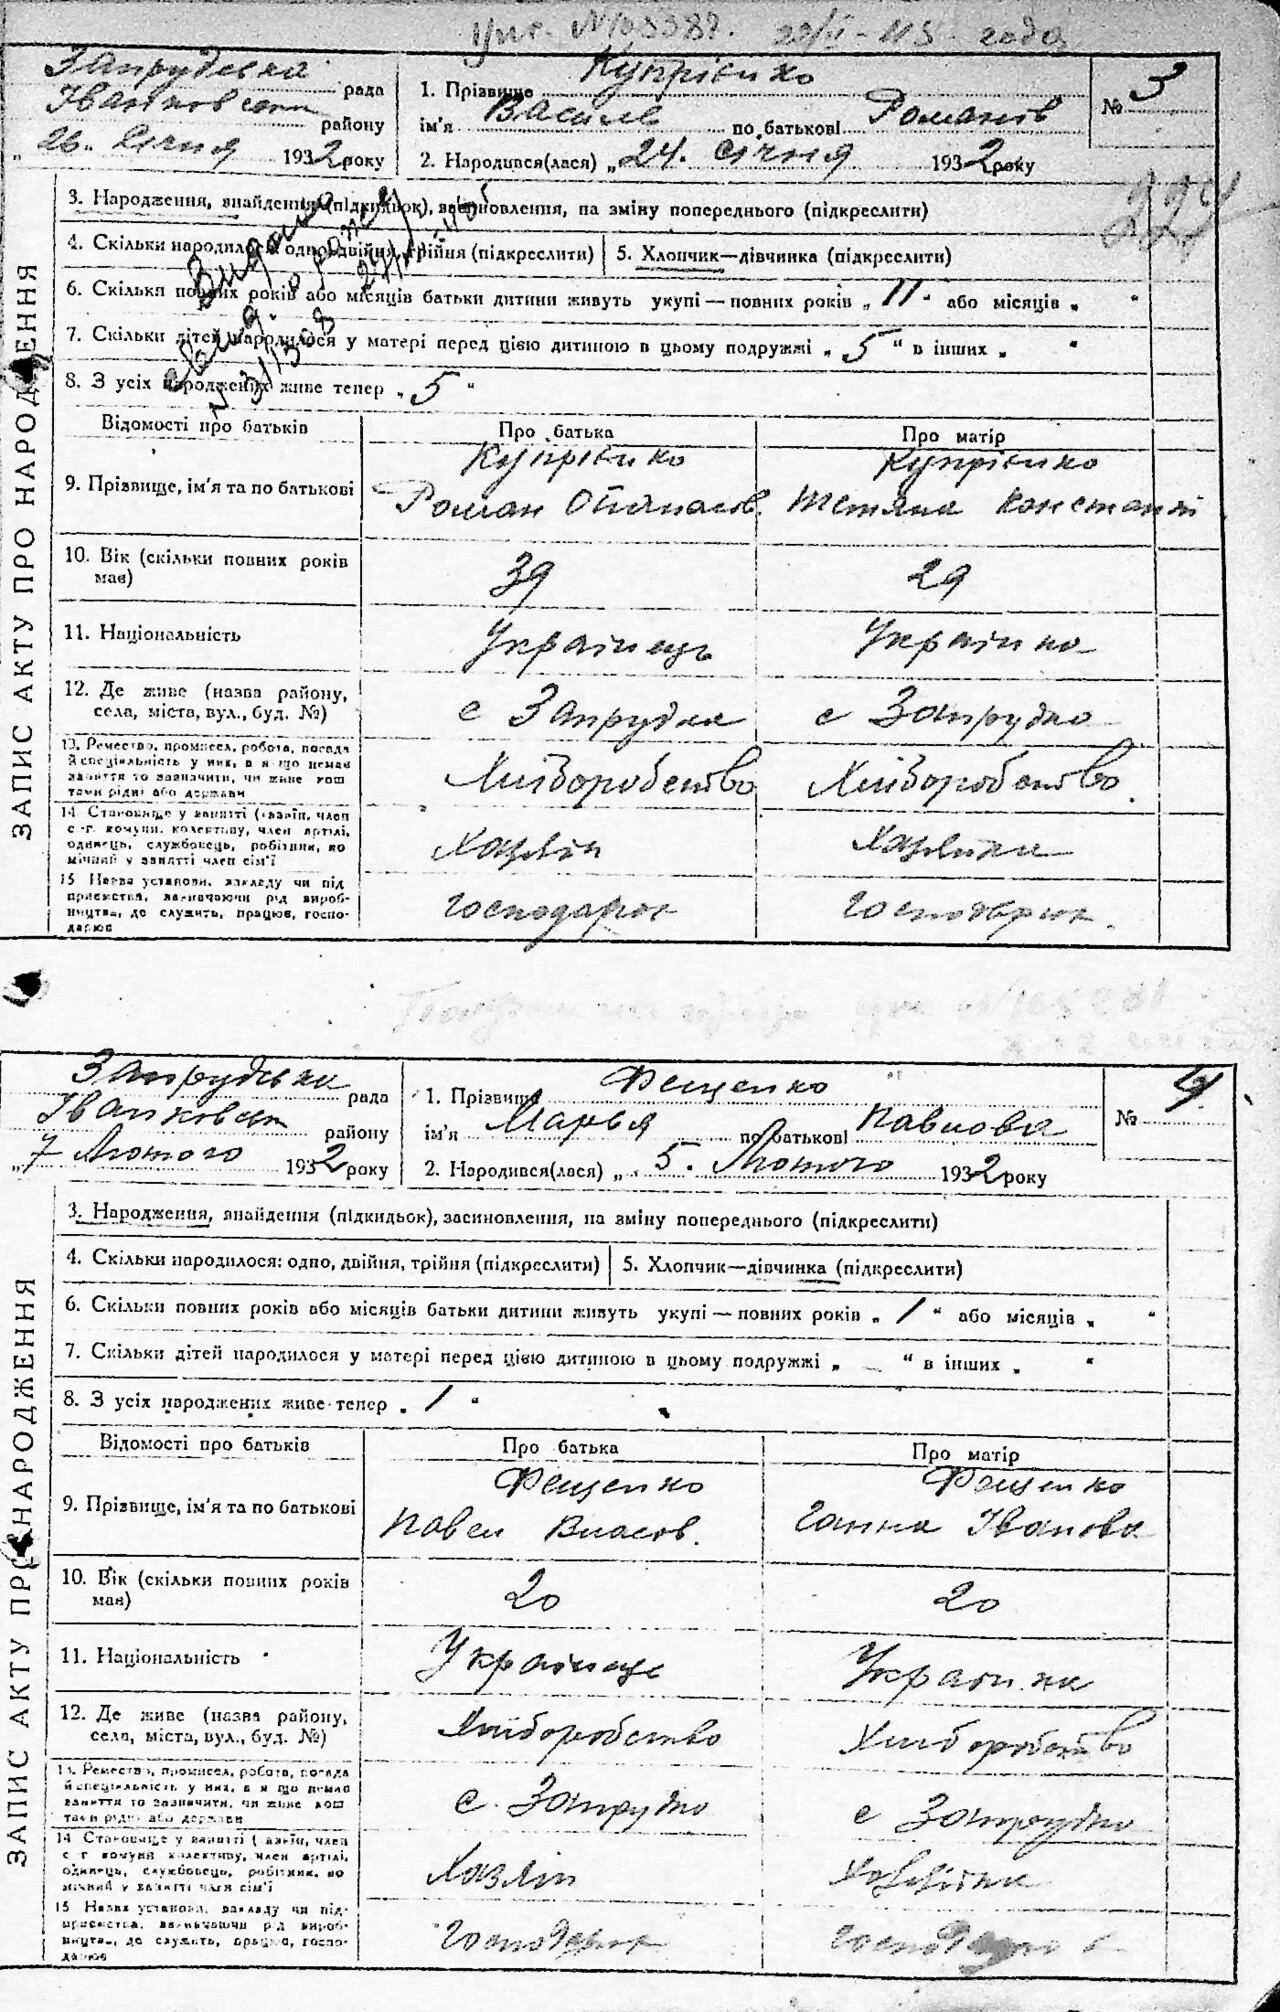 Запрудська рада
Іванковськ району
„ 26. Січня 1932 року
1. Прізвище Купрієнко
ім'я Василь по батькові Романов
2. Народився(лася) „ 24. січня 1932 року
№ 3
224
3. Народження, знайдення (підкидьок), засиновлення, на зміну попереднього (підкреслити)
4. Скільки народилося: одно, двійня, трійня (підкреслити) 5. Хлопчик—дівчинка (підкреслити)
6. Скільки повних років або місяців батьки дитини живуть укупі — повних років „ 11 “ або місяців „ “
7. Скільки дітей народилося у матері перед цією дитиною в цьому подружжі „ 5 “ в інших „ “
8. З усіх народжених живе тепер „ 5 “
Відомості про батьків Про батька Про матір
9. Прізвище, ім'я та по батькові
Купрієнко Купрієнко
Роман Тетяна
10. Вік (скільки повних років має) 39 29
11. Національність Українець Українка
12. Де живе (назва району, села, міста, вул., буд. №) с Запрудка с Запрудка
13. Ремество, промисел, робота, посада й спеціяльність у них, а якщо немає заняття то зазначити, чи живе коштами рідні або держави Хліборобство Хліборобство
14. Становище у занятті (хазяїн, член с.-г. комуни, колективу, член артілі, одинець, службовець, робітник, помічний у занятті член сім'ї Хазяїн Хазяйка
15. Назва установи, закладу чи підприємства, зазначаючи рід виробництва, де служить, працює, господарює
ЗАПИС АКТУ ПРО НАРОДЖЕННЯ
Запрудська рада
Іванковськ району
„ 7 Лютого 1932 року
1. Прізвище Фещенко
ім'я Марья по батькові Павлова
2. Народився(лася) „ 5. Лютого 1932 року
№ 4
3. Народження, знайдення (підкидьок), засиновлення, на зміну попереднього (підкреслити)
4. Скільки народилося: одно, двійня, трійня (підкреслити) 5. Хлопчик—дівчинка (підкреслити)
6. Скільки повних років або місяців батьки дитини живуть укупі — повних років „ 1 “ або місяців „ “
7. Скільки дітей народилося у матері перед цією дитиною в цьому подружжі „ — “ в інших „ “
8. З усіх народжених живе тепер „ 1 “
Відомості про батьків Про батька Про матір
9. Прізвище, ім'я та по батькові
Фещенко Фещенко
Павел Власов. Ганна Іванова
10. Вік (скільки повних років має) 20 20
11. Національність Українець Українка
12. Де живе (назва району, села, міста, вул., буд. №) Хліборобство Хліборобство
13. Ремество, промисел, робота, посада й спеціяльність у них, а якщо немає заняття то зазначити, чи живе коштами рідні або держави с. Запрудка с Запрудка
14. Становище у занятті (хазяїн, член с.-г. комуни, колективу, член артілі, одинець, службовець, робітник, помічний у занятті член сім'ї Хазяїн Хазяйка
15. Назва установи, закладу чи підприємства, зазначаючи рід виробництва, де служить, працює, господарює
ЗАПИС АКТУ ПРО НАРОДЖЕННЯ